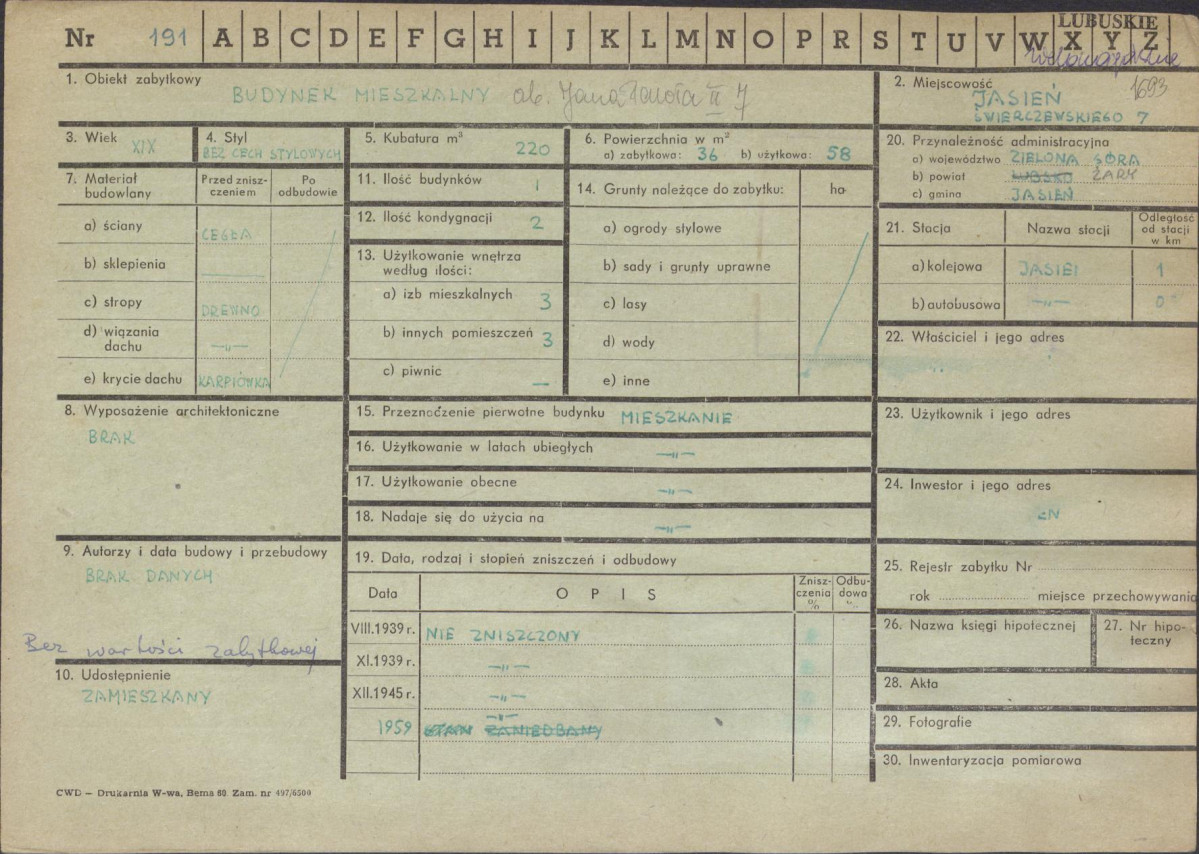 LUBUSKIE
Nr 191 A B C D E F G H I J K L M N O P R S T U V W X Y Z
1. Obiekt zabytkowy
BUDYNEK MIESZKALNY ob. Jana II 7
2. Miejscowość 1693
JASIEŃ
ŚWIERCZEWSKIEGO 7
3. Wiek XIX
4. Styl
BEZ CECH STYLOWYCH
5. Kubatura m³
220
6. Powierzchnia w m²
a) zabytkowa: 36 b) użytkowa: 58
20. Przynależność administracyjna
a) województwo ZIELONA GÓRA
b) powiat LUBSKO ŻARY
c) gmina JASIEŃ
7. Materiał budowlany
Przed znisz-
czeniem
Po
odbudowie
a) ściany CEGŁA
b) sklepienia
c) stropy DREWNO
d) wiązania
dachu —„—
e) krycie dachu KARPIÓWKA
11. Ilość budynków 1
12. Ilość kondygnacji 2
13. Użytkowanie wnętrza
według ilości:
a) izb mieszkalnych 3
b) innych pomieszczeń 3
c) piwnic —
14. Grunty należące do zabytku: ha
a) ogrody stylowe
b) sady i grunty uprawne
c) lasy
d) wody
e) inne
21. Stacja Nazwa stacji
Odległość
od stacji
w km
a) kolejowa JASIEŃ 1
b) autobusowa —„— 0
22. Właściciel i jego adres
8. Wyposażenie architektoniczne
BRAK
15. Przeznaczenie pierwotne budynku MIESZKANIE
16. Użytkowanie w latach ubiegłych —„—
17. Użytkowanie obecne —„—
18. Nadaje się do użycia na —„—
23. Użytkownik i jego adres
24. Inwestor i jego adres
9. Autorzy i data budowy i przebudowy
BRAK DANYCH
Bez wartości zabytkowej
10. Udostępnienie
ZAMIESZKANY
19. Data, rodzaj i stopień zniszczeń i odbudowy
Data OPIS
Znisz-
czenia
%
Odbu-
dowa
%
VIII.1939 r. NIE ZNISZCZONY
XI.1939 r. —„—
XII.1945 r. —„—
—„—
1959 STAN ZANIEDBANY
25. Rejestr zabytku Nr
rok miejsce przechowywania
26. Nazwa księgi hipotecznej
27. Nr hipo-
teczny
28. Akta
29. Fotografie
30. Inwentaryzacja pomiarowa
CWD – Drukarnia W-wa, Bema 60 Zam. nr 497/6500